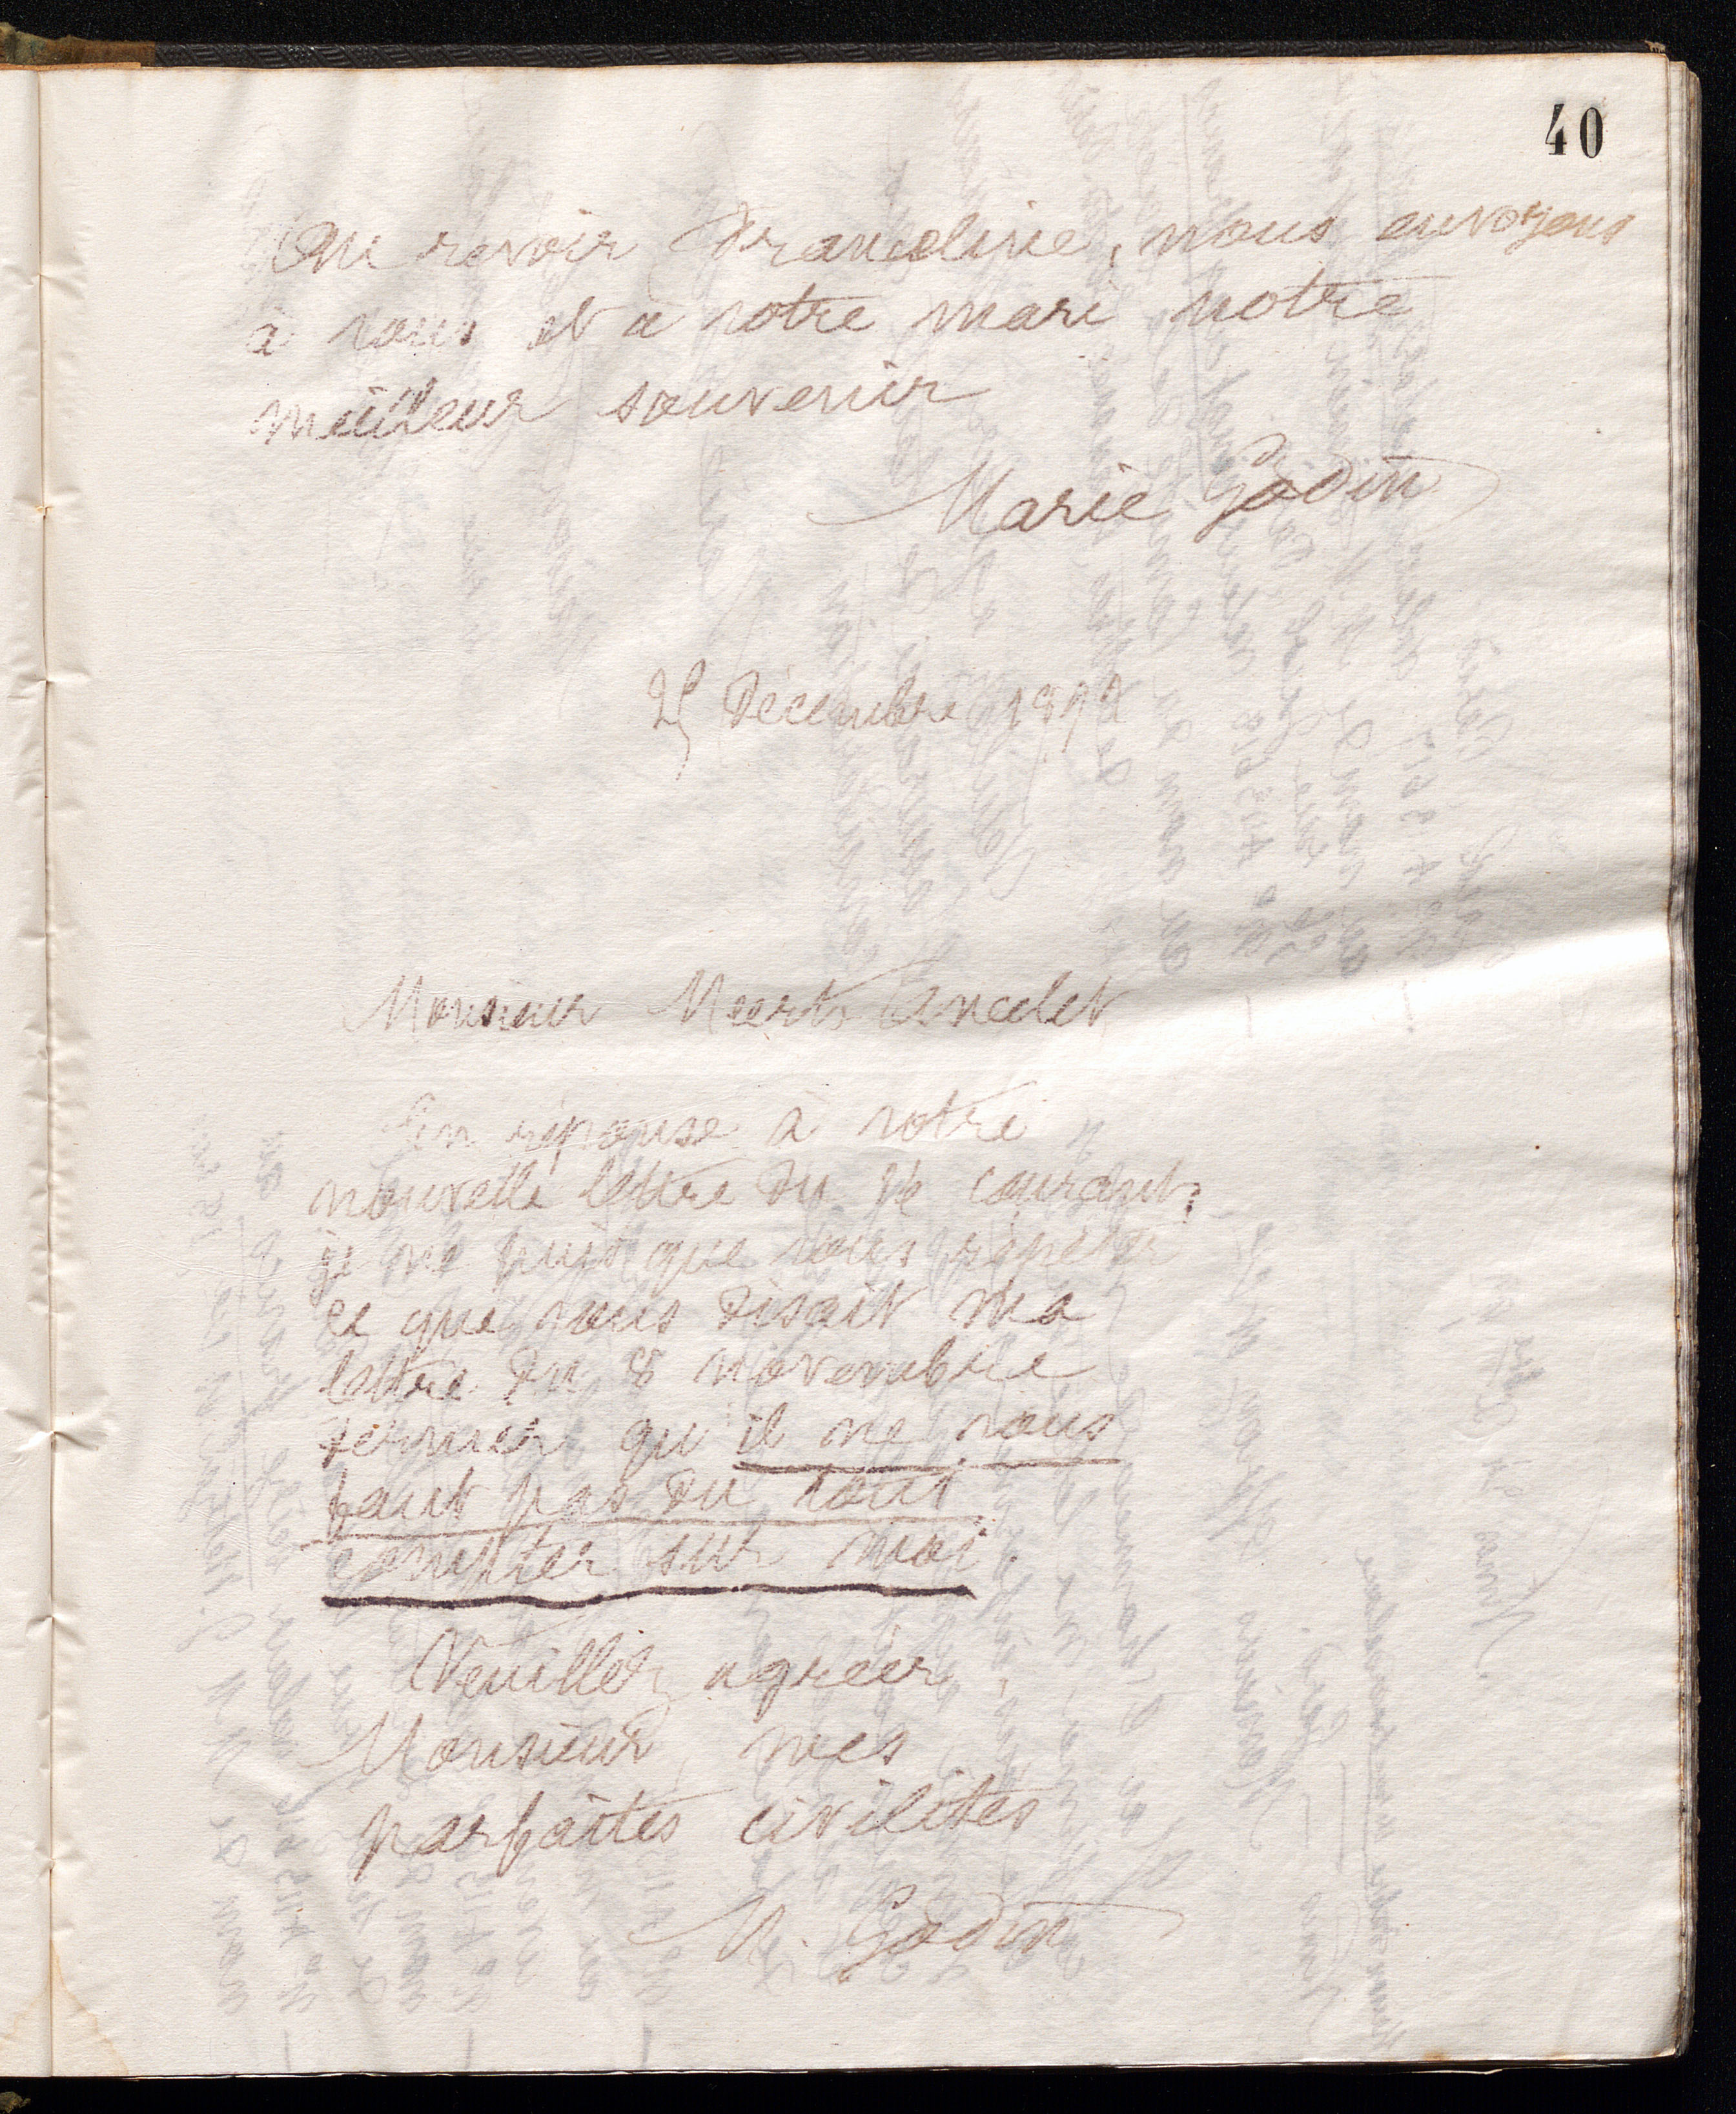 40
Au revoir Franceline, nous envoyons
à vous et à votre mari notre
meilleur souvenir
Marie Godin
25 Décembre 1892
Monsieur Meerts Ancelet
En réponse à votre
nouvelle lettre du courant,
je ne puis que vous répéter
ce que vous disait ma
lettre du 8 novembre
dernier qu'il ne vous
faut pas du tout
compter sur moi.
Veuillez agréer,
Monsieur, mes
parfaites civilités
M. Godin